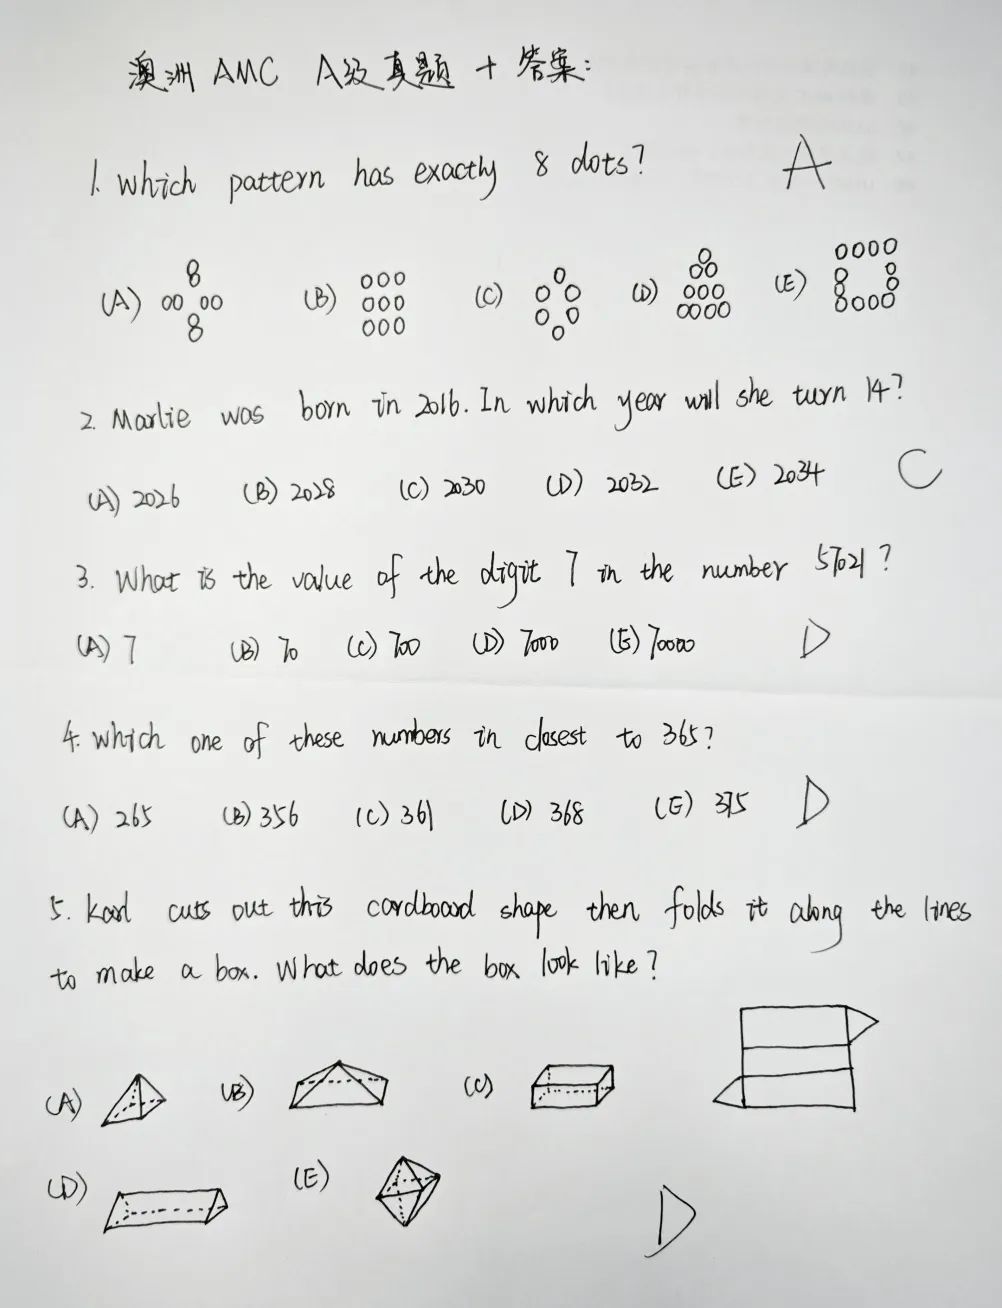 澳洲 AMC A级真题 + 答案:
1. Which pattern has exactly 8 dots? A
(A) (B) (C) (D) (E)
2. Marlie was born in 2016. In which year will she turn 14?
(A) 2026 (B) 2028 (C) 2030 (D) 2032 (E) 2034 C
3. What is the value of the digit 7 in the number 57021?
(A) 7 (B) 70 (C) 700 (D) 7000 (E) 70000 D
4. Which one of these numbers in closest to 365?
(A) 265 (B) 356 (C) 361 (D) 368 (E) 375 D
5. Karl cuts out this cardboard shape then folds it along the lines
to make a box. What does the box look like?
(A) (B) (C)
(D) (E) D